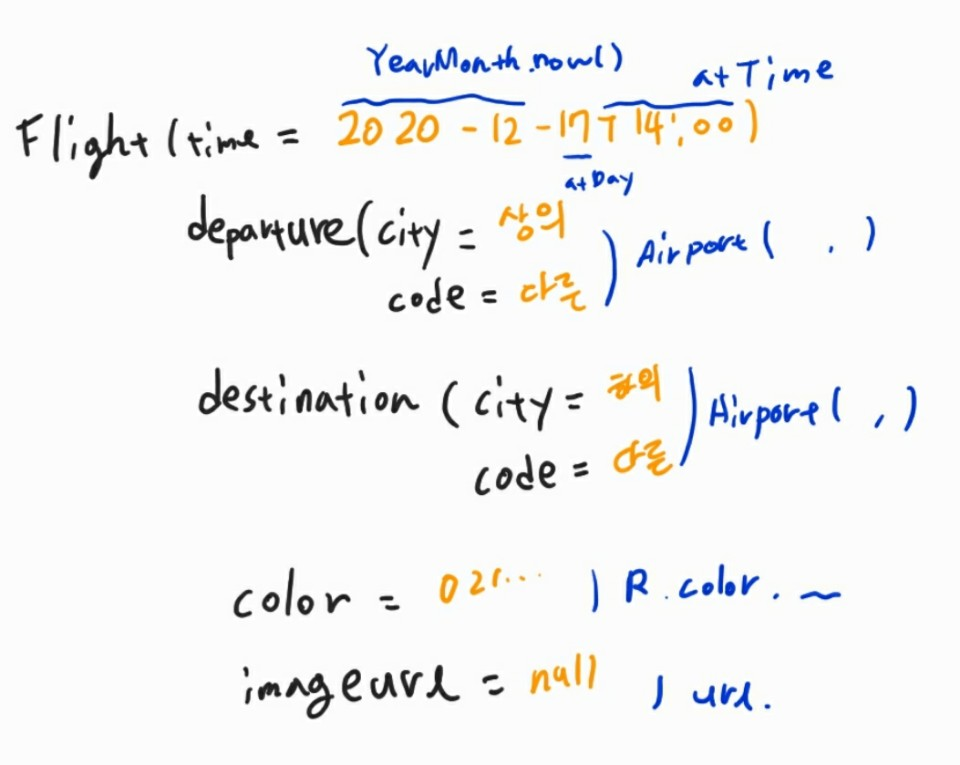 YearMonth.now() atTime
Flight (time = 2020-12-17T14:00)
atDay
departure (city = 상의
code = 다른 ) Airport ( , )
destination (city =
code = 다른 ) Airport ( , )
color = 021... ) R.color. ~
imageurl = null ) url.